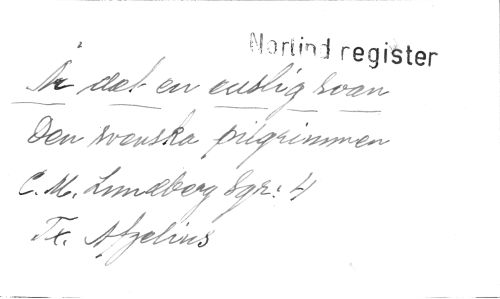 Nortind register
Är det en enslig svan
Den svenska pilgrimmen
C. M. Lundberg Sgr: 4
Tx. Afzelius